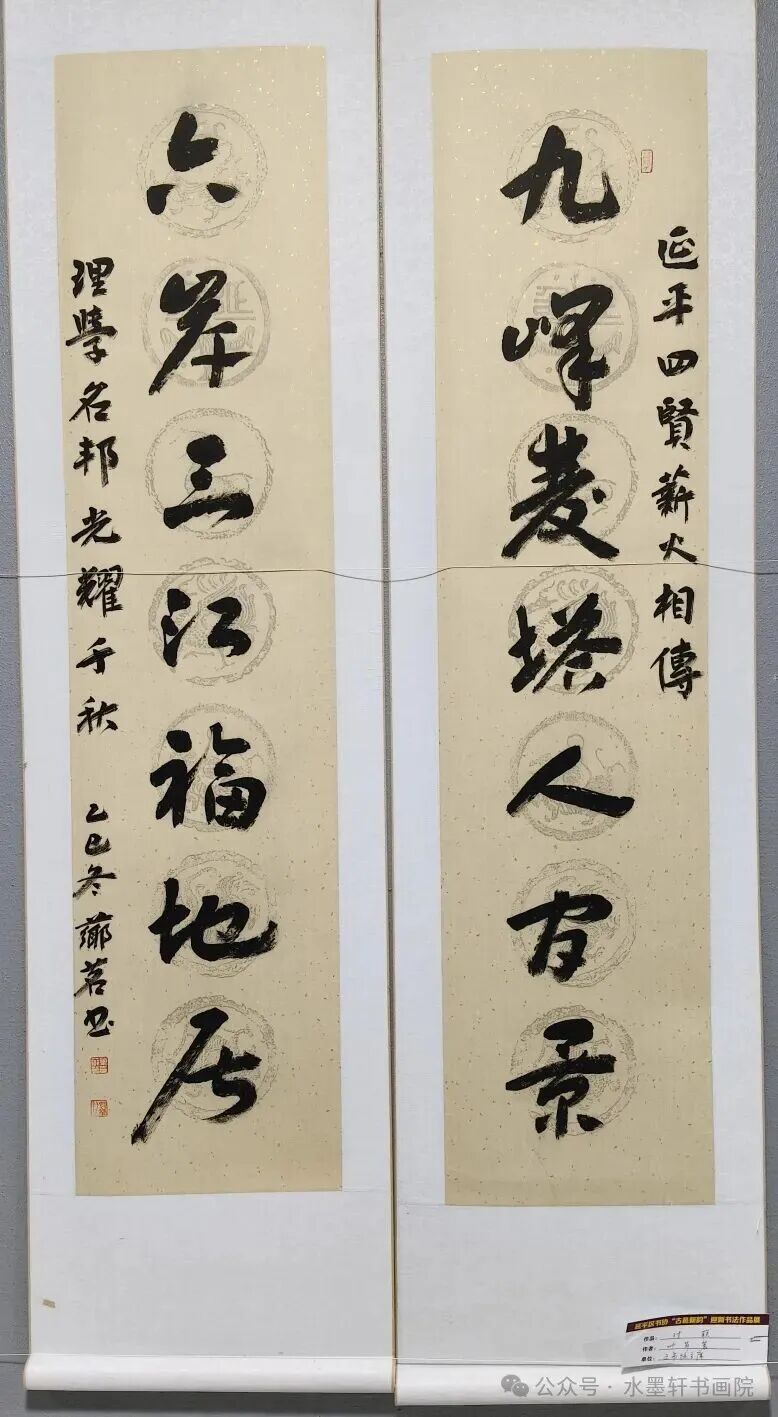 延平四賢薪火相傳
九峰雙塔人間景
六岸三江福地居
理學名邦光耀千秋 乙巳冬薌茗书
延平区书协“古邑新韵”书法作品展
作品：对联
作者：
单位：
公众号·水墨轩书画院